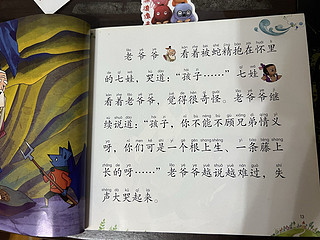 老爷爷看着被蛇精抱在怀里
的七娃，哭道：“孩子……”七娃
看着老爷爷，觉得很奇怪。老爷爷继
续说道：“孩子，你不能不顾兄弟情义
呀，你们可是一个根上生、一条藤上
长的呀……”老爷爷越说越难过，失
声大哭起来。